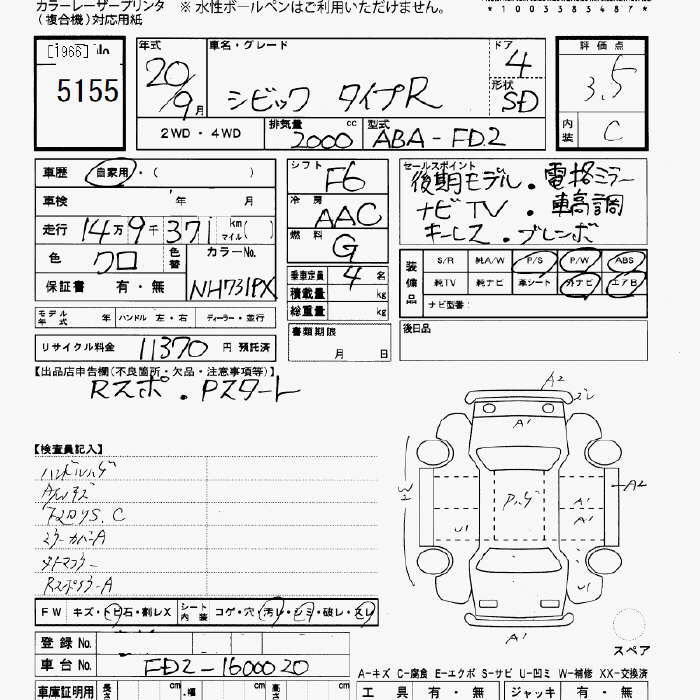 カラーレーザープリンタ ※ 水性ボールペンはご利用いただけません。
（複合機）対応用紙
*1003383487*
[1966]
5155
年式 車名・グレード ドア 評価点
20/9月 シビック タイプR 4 3.5
形状 SD
2WD・4WD 排気量 2000 cc 型式 ABA-FD2 内装 C
車歴 自家用・( )
シフト F6
セールスポイント
後期モデル・電格ミラー
ナビTV・車高調
キーレス・ブレンボ
車検 年 月
冷房 AAC
走行 14万9千371 km(マイル)
燃料 G
色 クロ 色替 カラーNo. NH731PX
保証書 有・無
乗車定員 4 名
積載量 kg
総重量 kg
装備品 S/R 純A/W P/S P/W ABS
純TV 純ナビ 革シート 外ナビ エアB
ナビ型番:
モデル年式 年 ハンドル 左・右 ディーラー・並行
書類期限 月 日
後日品
リサイクル料金 11370 円 預託済
【出品店申告欄(不良箇所・欠品・注意事項等)】
Rスポ・Pスタート
【検査員記入】
ハンドルハゲ
A/Wキズ
フロアS、C
ミラーカバーA
外マフラー
RスポイラーA
FW キズ・トビ石・割レX シート内装 コゲ・穴・汚レ・シミ・破レ・スレ
A2
ズレ
A1
W
Pハゲ
A1
A2
A1
U1
U1
A1
スペア
登録No.
車台No. FD2-1600020
A-キズ C-腐食 E-エクボ S-サビ U-凹ミ W-補修 XX-交換済
車庫証明用 長さ cm 幅 cm 高さ cm
工具 有・無 ジャッキ 有・無